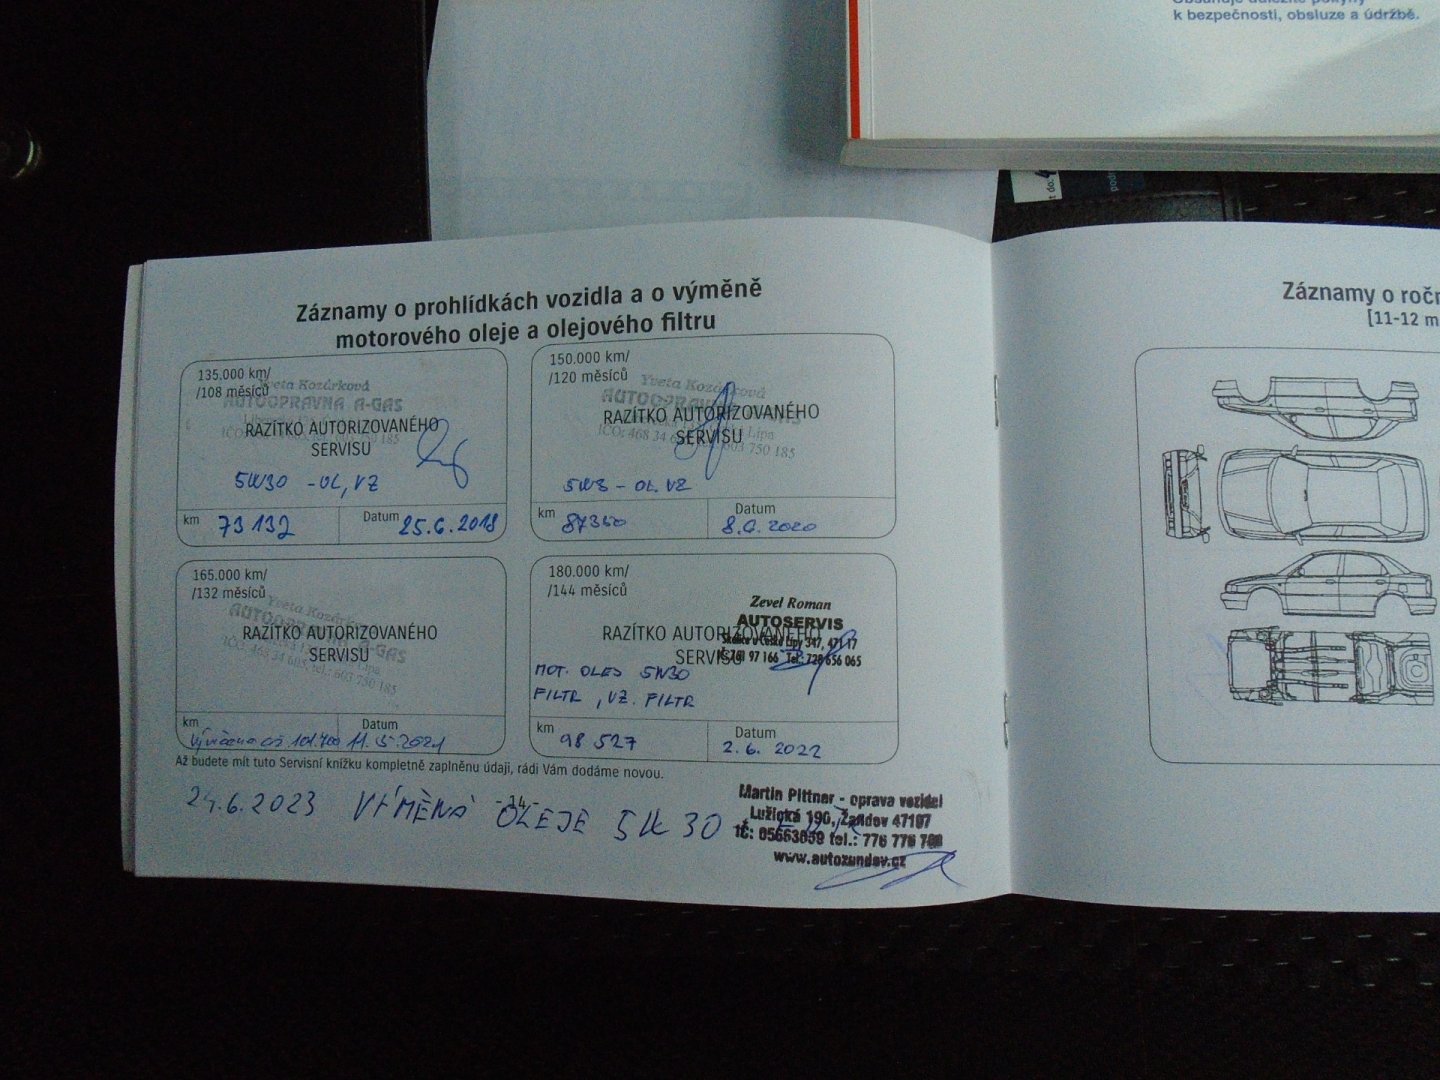 k bezpečnosti, obsluze a údržbě.
Záznamy o prohlídkách vozidla a o výměně
motorového oleje a olejového filtru
135.000 km/
/108 měsíců
Yveta Kozárková
AUTOOPRAVNA A-GAS
RAZÍTKO AUTORIZOVANÉHO
SERVISU
5W30 - OL, VZ
km 73 132 Datum 25.6.2018
150.000 km/
/120 měsíců
Yveta Kozárková
AUTOOPRAVNA
RAZÍTKO AUTORIZOVANÉHO
Lípa
SERVISU
IČO: 468 34 603 750 185
- OL. VZ
km 87350 Datum 2020
165.000 km/
/132 měsíců
Yveta Kozárková
AUTOOPRAVNA A-GAS
RAZÍTKO AUTORIZOVANÉHO
Lípa
SERVISU
IČO: 468 34 603 tel.: 603 750 185
km Datum
101.700 11.5.2021
180.000 km/
/144 měsíců
Zevel Roman
AUTOSERVIS
RAZÍTKO AUTORIZOVANÉHO
Skalice u České Lípy 347, 471 17
SERVISU
97 166 Tel: 728 656 065
MOT. OLEJ 5W30
FILTR, VZ. FILTR
km 98 527 Datum 2.6.2022
Až budete mít tuto Servisní knížku kompletně zaplněnu údaji, rádi Vám dodáme novou.
-14-
24.6.2023 VÝMĚNA OLEJE 5W30
Martin Pittner - oprava vozidel
Lužická 190, Žandov 47107
IČ: 05663059 tel.: 776 776 700
www.autozandov.cz
Záznamy o ročn
[11-12 m